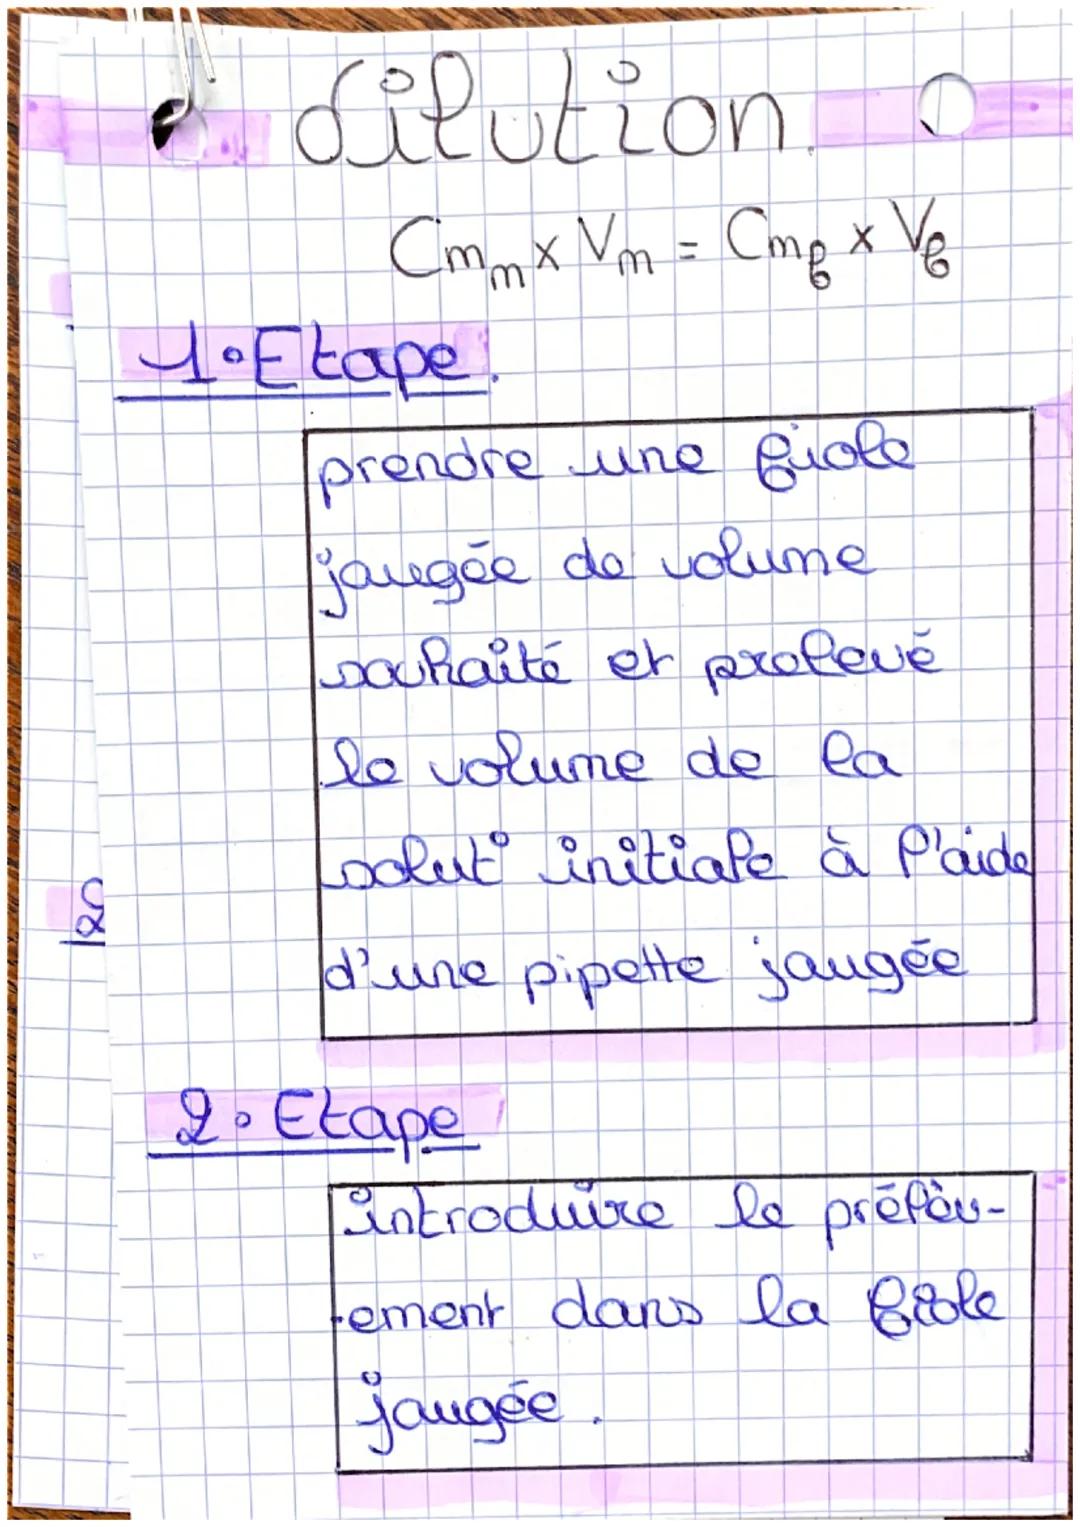 dilution.
Cmm x Vm = Cmf x Vf
1°Etape.
prendre une fiole
jaugée de volume
souhaité et prelevé
le volume de la
solut° initiale à l'aide
d'une pipette jaugée
2
2. Etape
introduire le prélèv-
-ement dans la fiole
jaugée.